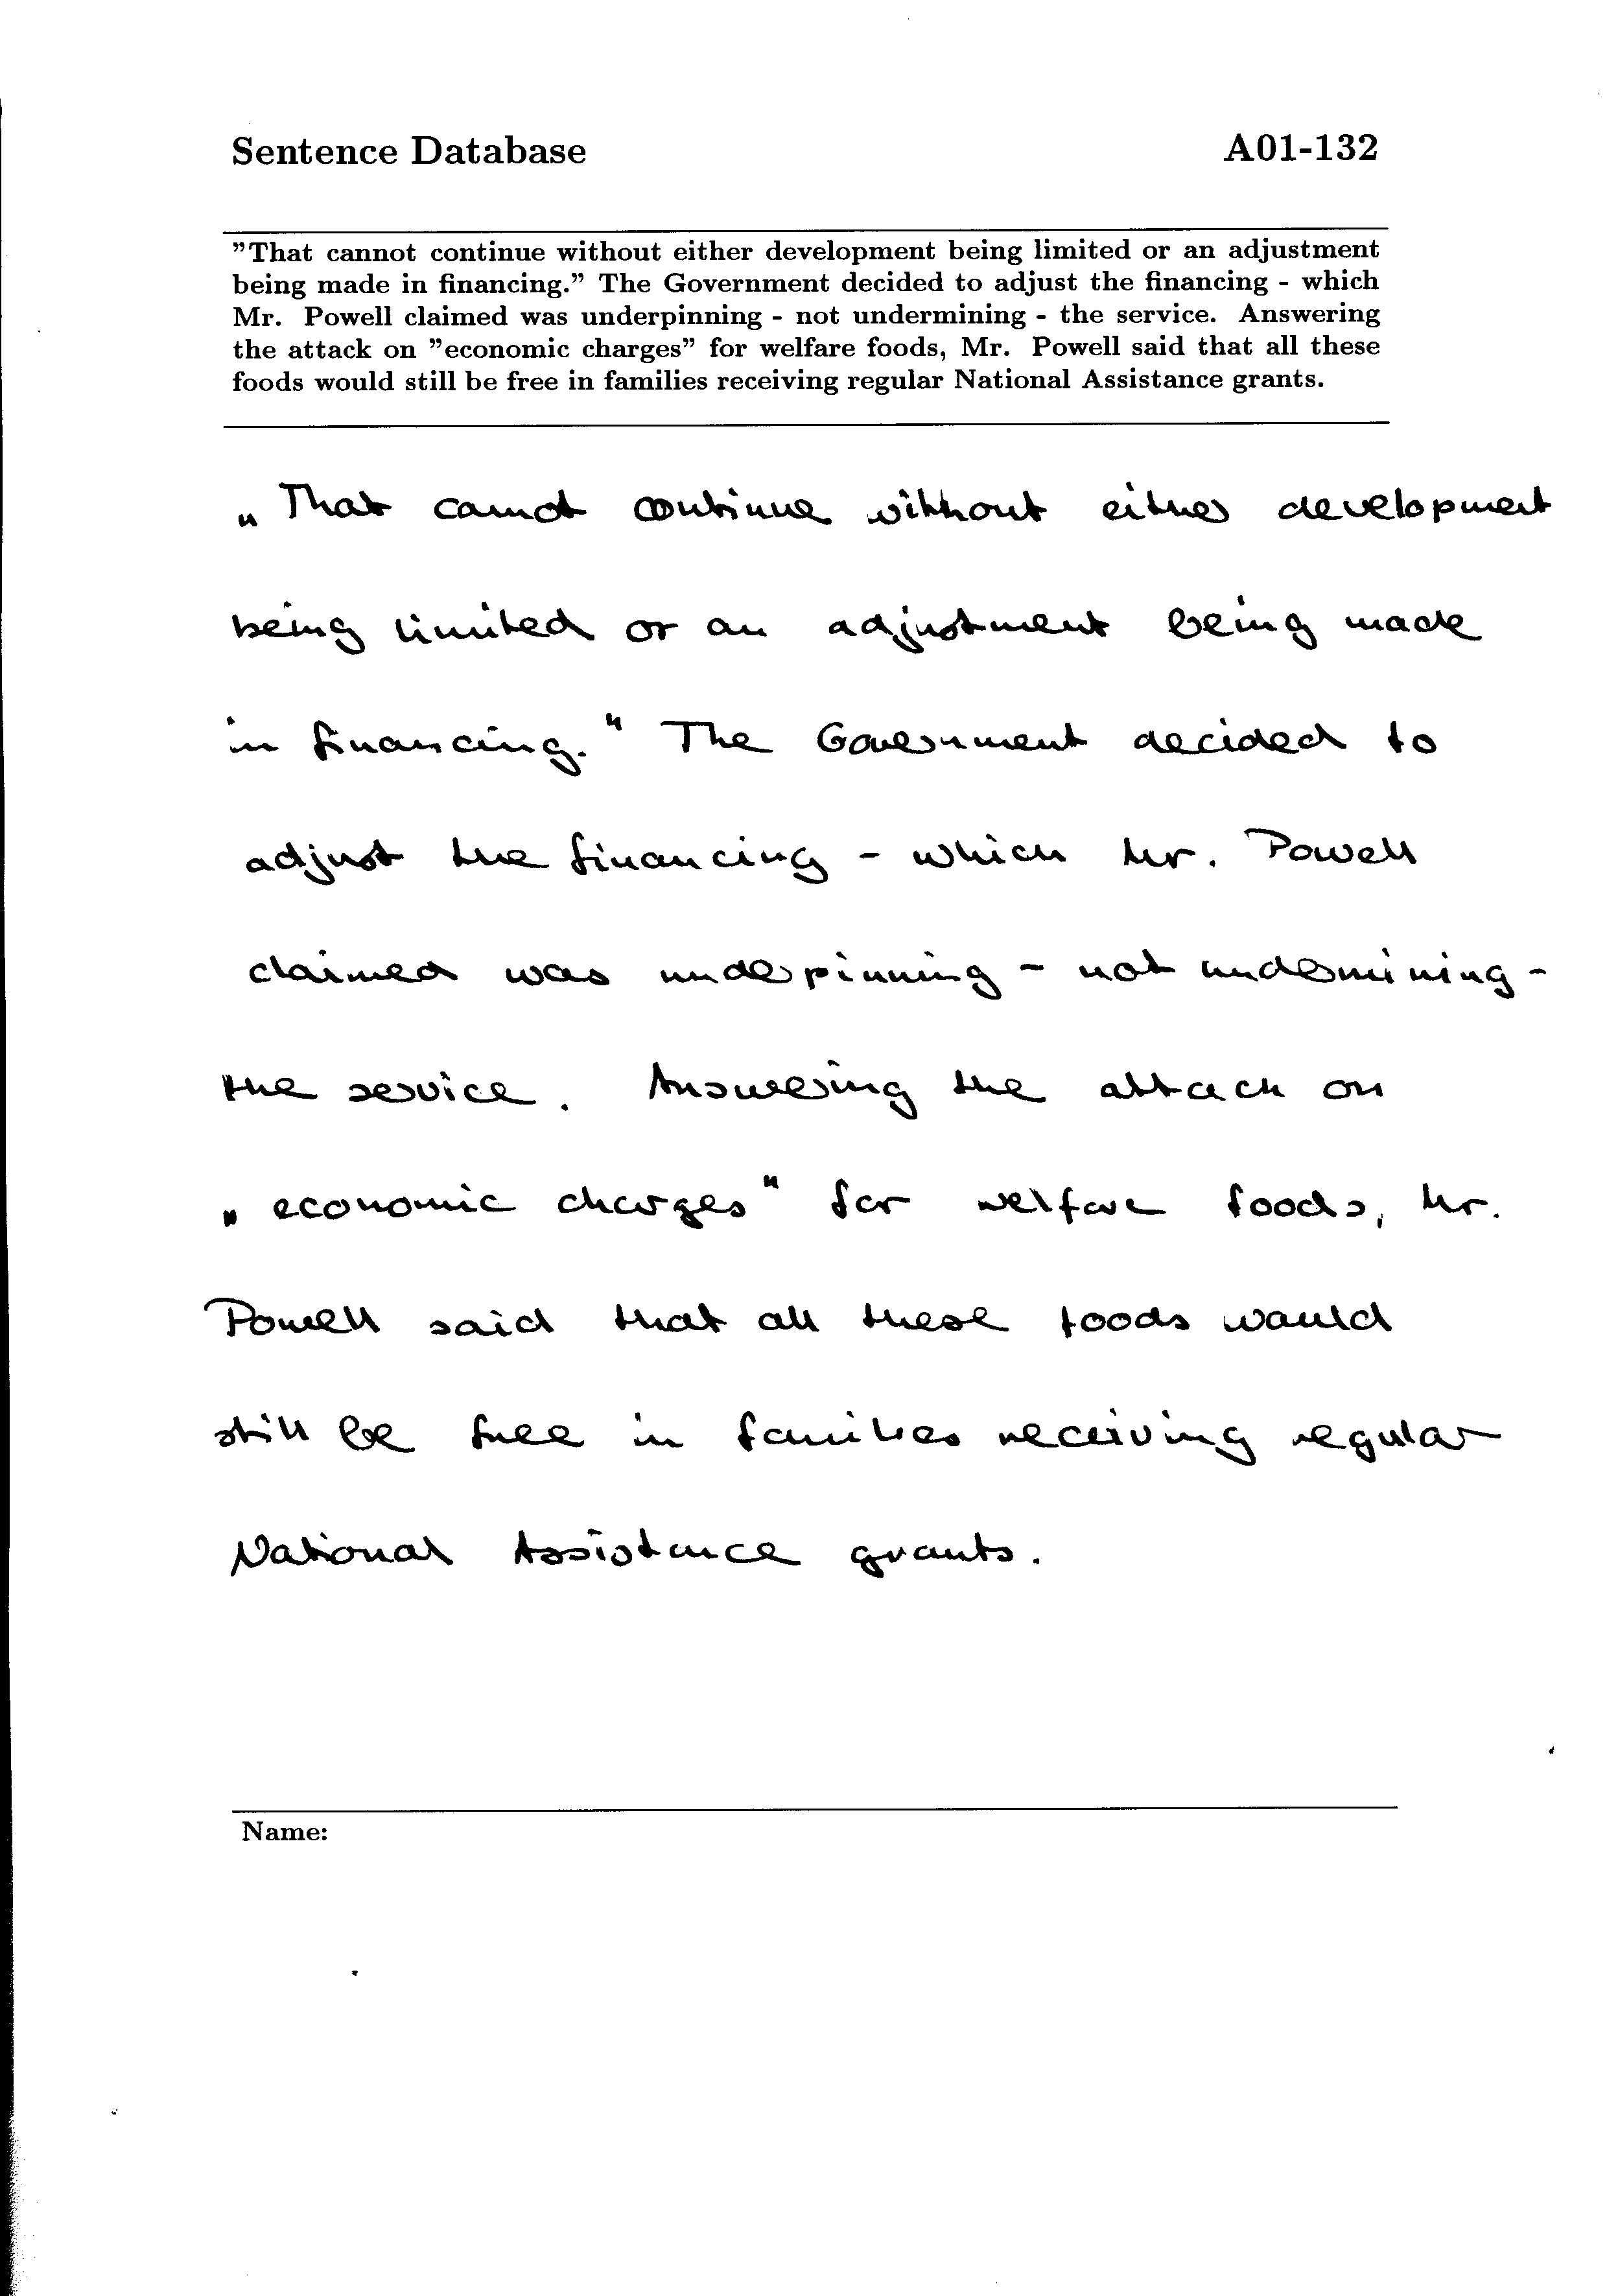 Sentence Database A01-132
"That cannot continue without either development being limited or an adjustment
being made in financing." The Government decided to adjust the financing - which
Mr. Powell claimed was underpinning - not undermining - the service. Answering
the attack on "economic charges" for welfare foods, Mr. Powell said that all these
foods would still be free in families receiving regular National Assistance grants.
„That cannot continue without either development
being limited or an adjustment being made
in financing." The Government decided to
adjust the financing - which Mr. Powell
claimed was underpinning - not undermining -
the service. Answering the attack on
„economic charges" for welfare foods, Mr.
Powell said that all these foods would
still be free in families receiving regular
National Assistance grants.
Name: